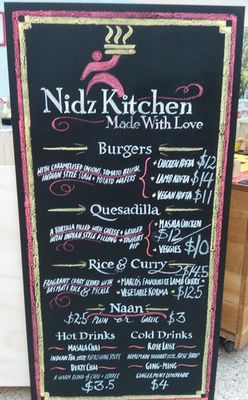 Nidz Kitchen
Made With Love
Burgers
WITH CARAMELISED ONIONS, TOMATO RELISH,
INDIAN STYLE SLAW + POTATO WAFERS
• CHICKEN KOFTA $12
• LAMB KOFTA $14
• VEGAN KOFTA $11
Quesadilla
A TORTILLA FILLED WITH CHEESE & GRILLED
WITH INDIAN STYLE FILLING + YOGHURT
DIP
• MASALA CHICKEN
$12
• VEGGIES $10
Rice & Curry
FRAGRANT CURRY SERVED WITH
BASMATI RICE & PICKLE
$14.5
• MARCO'S FAVOURITE LAMB CURRY
• VEGETABLE KORMA - $12.5
Naan
$2.5 PLAIN or GARLIC $3
Hot Drinks
MASALA CHAI
INDIAN TEA WITH REFRESHING SPICES
DIRTY CHAI
A WARM BLEND OF CHAI + COFFEE
$3.5
Cold Drinks
ROSE LASSI
HOMEMADE YOGHURT ROSE SYRUP
GING-MING
GINGER MINT LEMONADE
$4